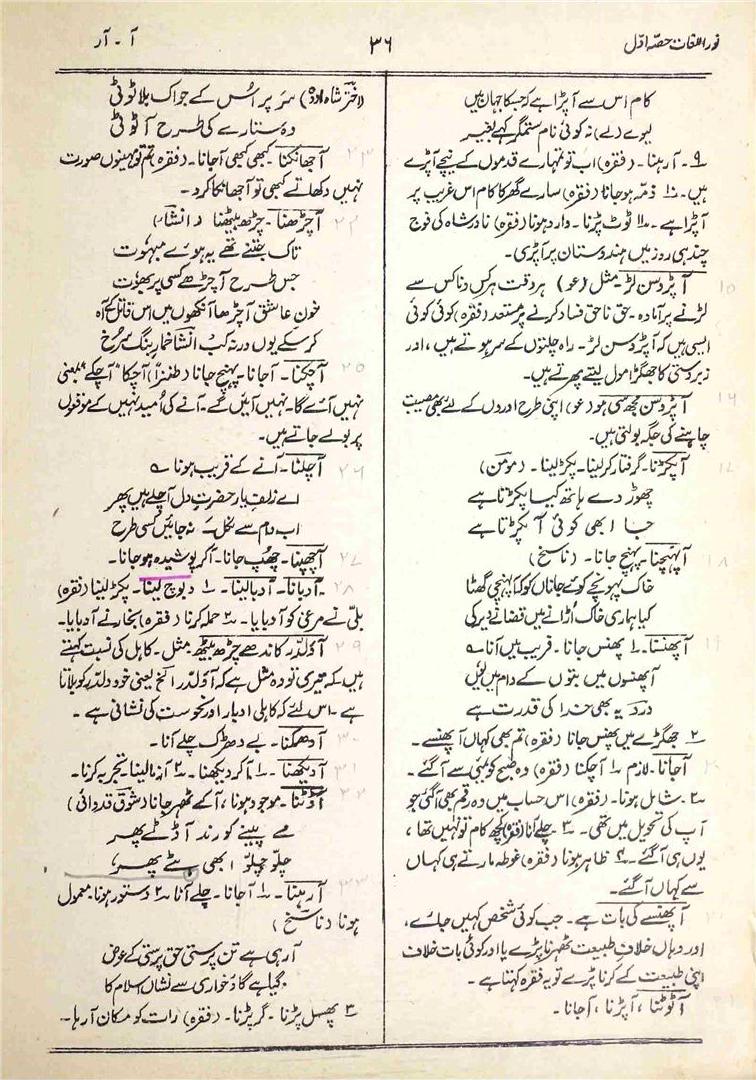 نور اللغات حصّہ اوّل
۳۶
آ - آر
کام اس سے آپڑا ہے کہ جسکا جہان میں
لیوے (لے) نہ کوئی نام ستمگر کہے بغیر
۹- آرہنا- (فقرہ) اب تو تمہارے قدموں کے نیچے آپڑے
ہیں- ۱۰ ذمّہ ہوجانا (فقرہ) سارے گھر کا کام اس غریب پر
آپڑا ہے- ۱۱ ٹوٹ پڑنا- وارد ہونا (فقرہ) نادر شاہ کی فوج
چند ہی روز میں ہندوستان پر آپڑی۔
آپڑوسن لڑ- مثل (عو) ہر وقت ہر کس و ناکس سے
لڑنے پر آمادہ- حق ناحق فساد کرنے پر مستعد (فقرہ) کوئی کوئی
ایسی ہیں کہ آپڑوسن لڑ- راہ چلتوں کے سر ہوتے ہیں، اور
زبردستی کا جھگڑا مول لیتے پھرتے ہیں۔
آپڑوسن مجھ سی ہو (عو) اپنی طرح اوروں کے لیے بھی مصیبت
چاہنے کی جگہ بولتی ہیں۔
آپکڑنا- گرفتار کرلینا- پکڑ لینا- (مومن)
چھوڑ دے ہاتھ کیا پکڑتا ہے
جا ابھی کوئی آ پکڑتا ہے
آپہنچنا- پہنچ جانا- (ناسخ)
خاک پہونچے کوئے جاناں کو کہا پہنچی گھٹا
کیا ہماری خاک اُڑانے میں قضا نے دیر کی
آپھنسنا- ۱ پھنس جانا- قریب میں آنا ؎
آپھنسوں میں بتوں کے دام میں یوں
درد یہ بھی خدا کی قدرت ہے
۲ جھگڑے میں پھنس جانا (فقرہ) تم بھی کہاں آپھنسے-
آجانا- لازم ۱ آچکنا (فقرہ) وہ صبح کو بمبئی سے آگئے-
۲ شامل ہونا- (فقرہ) اس حساب میں وہ رقم بھی آگئی جو
آپ کی تحویل میں تھی- ۳ چلے آنا (فقرہ) کچھ کام تو نہیں تھا،
یوں ہی آگئے- ۴ ظاہر ہونا (فقرہ) غوطہ مارتے ہی کہاں
سے کہاں آگئے-
آپھنسے کی بات ہے- جب کوئی شخص کہیں جائے،
اور وہاں خلافِ طبیعت ٹھہرنا پڑے یا اور کوئی بات خلاف
اپنی طبیعت کے کرنا پڑے تو یہ فقرہ کہتا ہے-
آٹوٹنا، آپڑنا، آجانا-
(اختر شاہ اودھ) سر پر اُس کے جو اک بلا ٹوٹی
وہ ستارے کی طرح آ ٹوٹی
آجھانکنا- کبھی کبھی آجانا- (فقرہ) تم تو مہینوں صورت
نہیں دکھاتے کبھی تو آجھانکا کرو-
آچڑھنا- چڑھ بیٹھنا (انشا)
تاک جتنے تھے یہ ہوے مبہوت
جس طرح آچڑھے کسی پر بھوت
خونِ عاشق آچڑھا آنکھوں میں اس قاتل کے آہ
کرسکے یوں ورنہ کب انشا خمار بنگ سرخ
آچکنا- آجانا- پہنچ جانا (طنزاً) آچکا "آچکے" بمعنی
نہیں آئے گا- نہیں آئیں گے- آنے کی اُمید نہیں کے موقعوں
پر بولے جاتے ہیں-
آچلنا- آنے کے قریب ہونا ؎
اے زلفِ یار حضرتِ دل آچلے ہیں پھر
اب دام سے نکل کے نہ جائیں کسی طرح
آچھپنا- چھپ جانا- آکر پوشیدہ ہوجانا-
آدبانا- آدبالینا- ۱ دبوچ لینا- پکڑ لینا (فقرہ)
بلّی نے مرغی کو آدبایا- ۲ حملہ کرنا (فقرہ) بخار نے آدبایا-
آؤدلدّر کاندھے چڑھ بیٹھ مثل- کاہل کی نسبت کہتے
ہیں کہ میری تو وہ مثل ہے کہ آؤدلدّر الخ یعنی خود دلدّر کو بلاتا
ہے- اس لئے کہ کاہلی ادبار اور نحوست کی نشانی ہے-
آدھمکنا- بے دھڑک چلے آنا-
آدیکھنا- ۱ آکر دیکھنا- ۲ آزما لینا- تجربہ کرنا-
آڈٹنا- موجود ہونا، آکے ٹھہر جانا (شوق قدوائی)
مے پینے کو رند آ ڈٹے پھر
چلّو چلّو ابھی بٹے پھر
آرہنا- ۱ آجانا- چلے آنا ۲ دستور ہونا- معمول
ہونا (ناسخ)
آرہی ہے تن پرستی حق پرستی کے عوض
گیا ہے گا دُخواری سے نشاں اسلام کا
۳ پھسل پڑنا- گر پڑنا- (فقرہ) رات کو مکان آرہا-